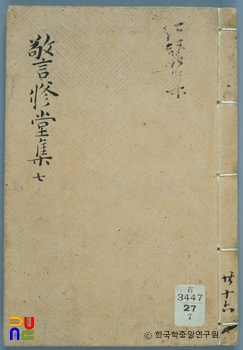 警修堂集 七
古
3447
27
7
共十六
한국학중앙연구원